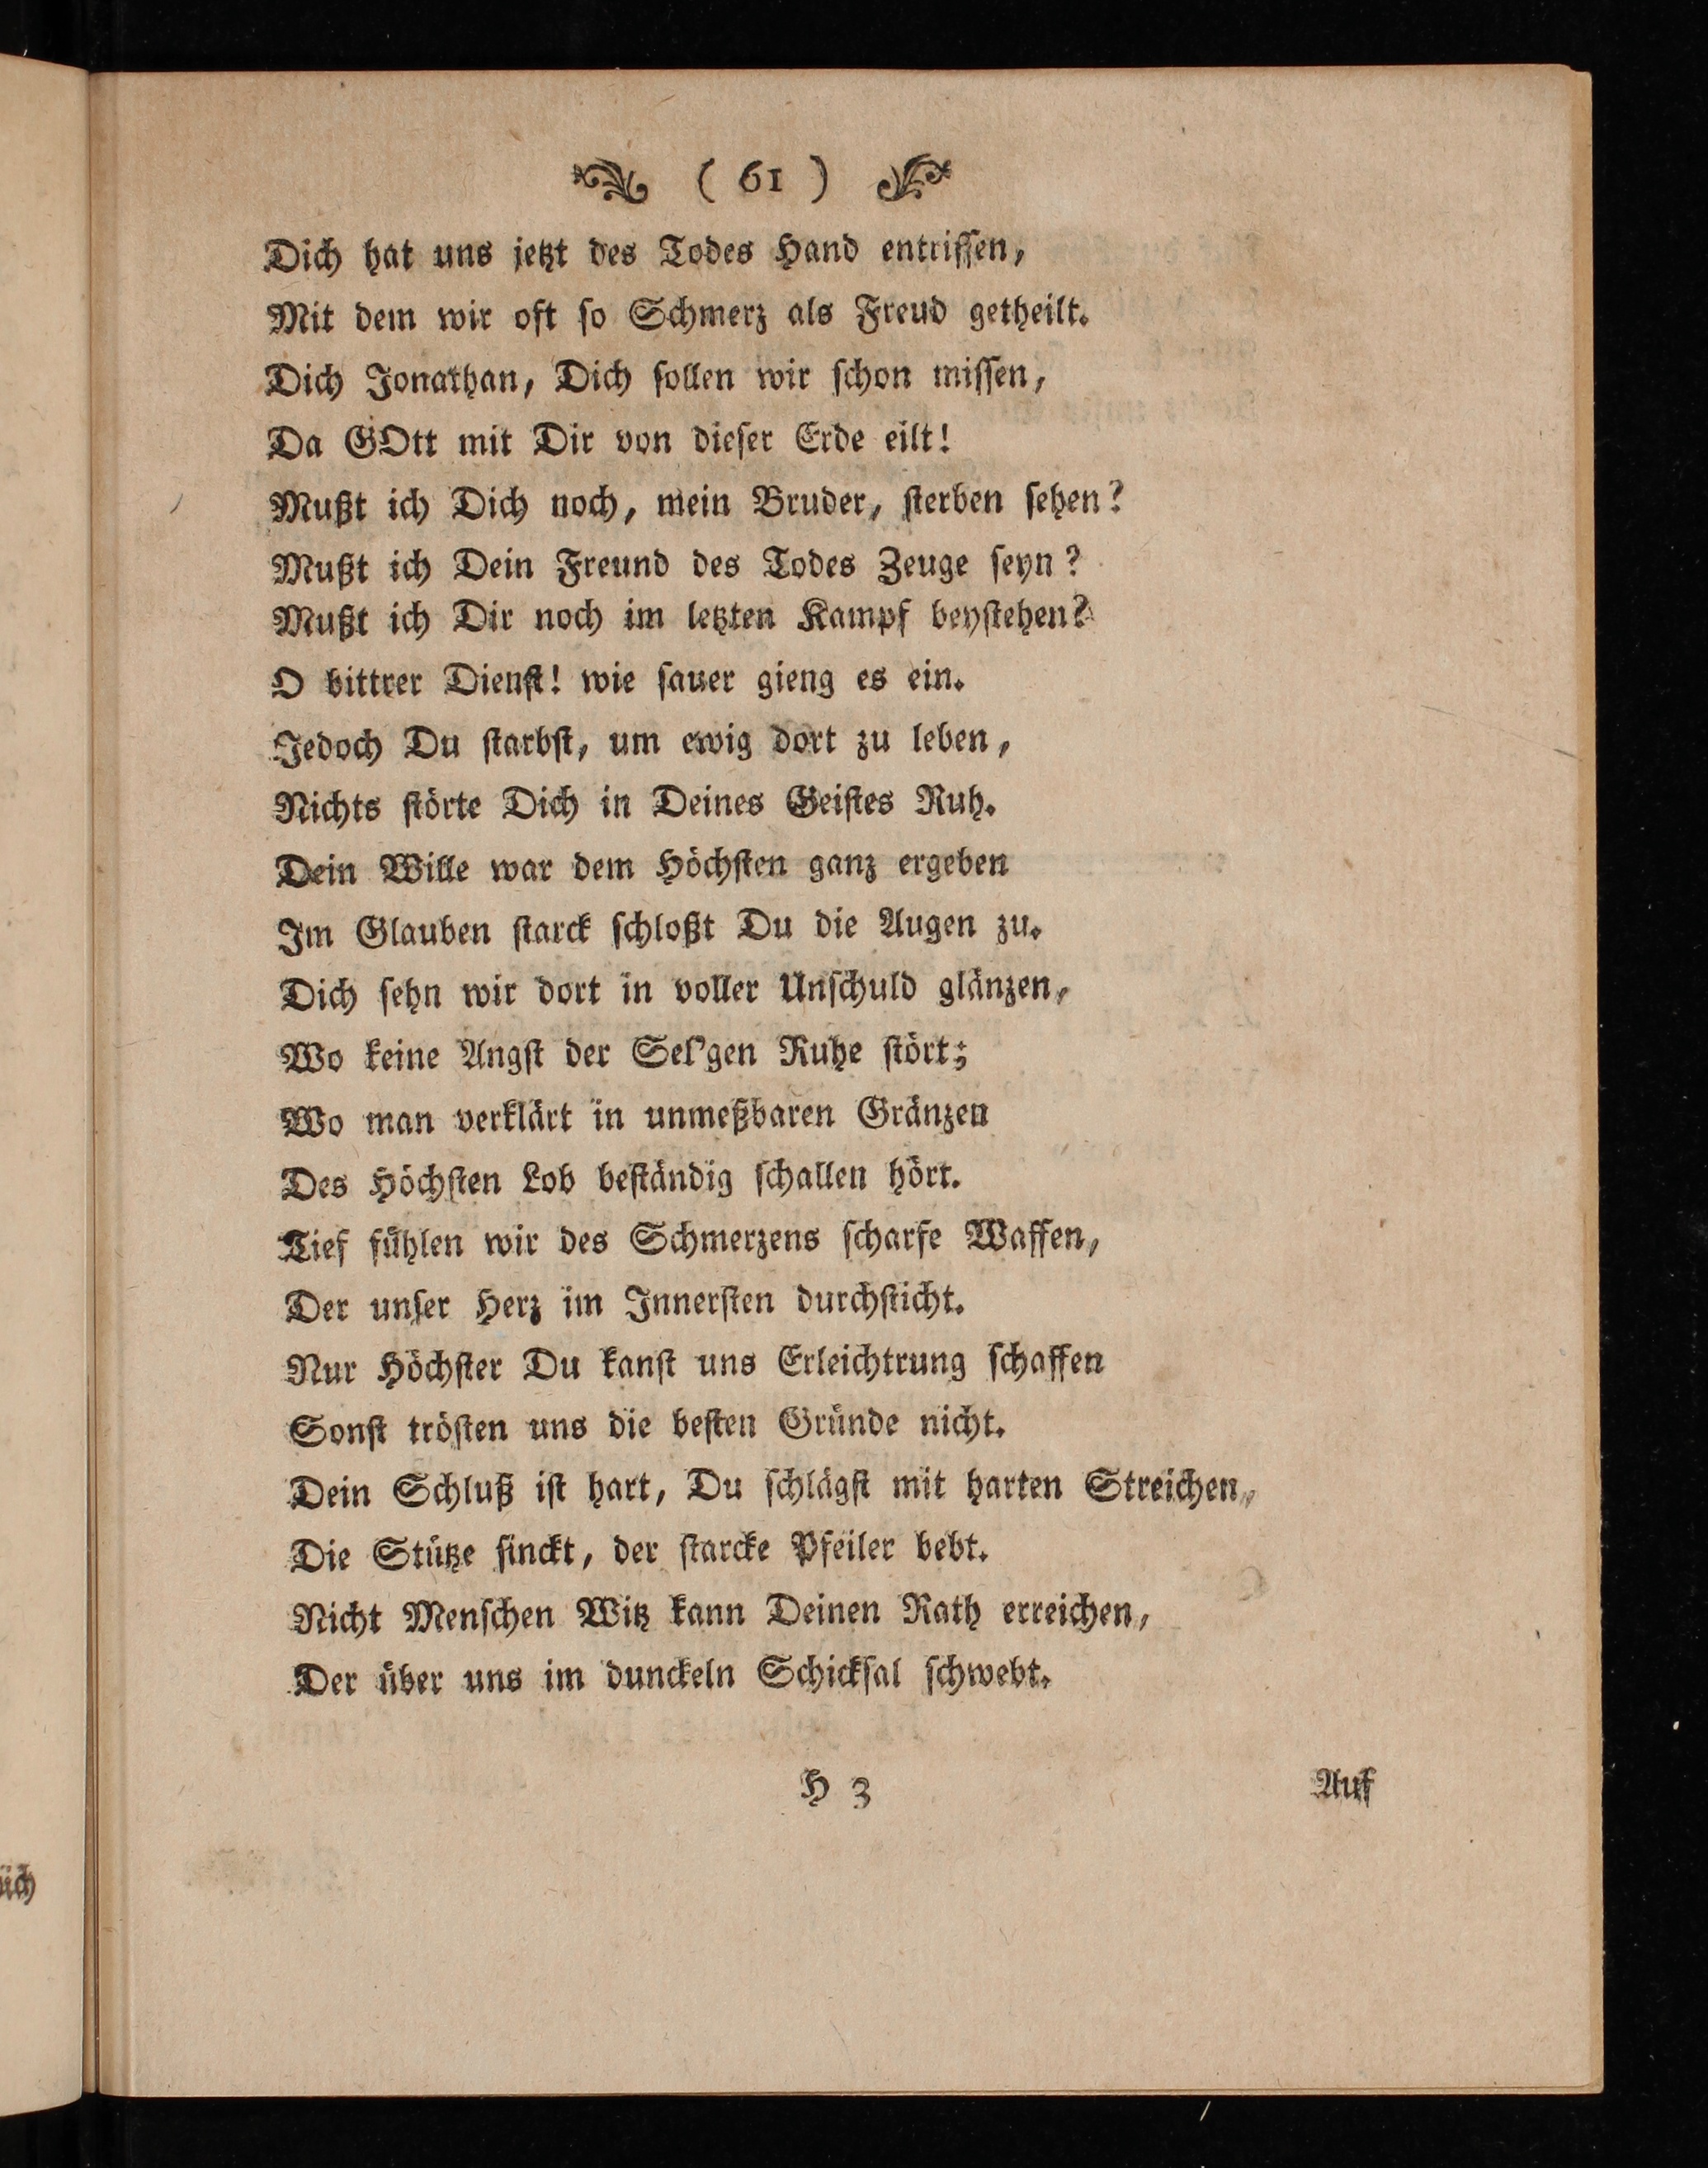 ( 61 )
Dich hat uns jetzt des Todes Hand entriſſen,
Mit dem wir oft ſo Schmerz als Freud getheilt.
Dich Jonathan, Dich ſollen wir ſchon miſſen,
Da GOtt mit Dir von dieſer Erde eilt!
Mußt ich Dich noch, mein Bruder, ſterben ſehen?
Mußt ich Dein Freund des Todes Zeuge ſeyn?
Mußt ich Dir noch im letzten Kampf beyſtehen?
O bittrer Dienſt! wie ſauer gieng es ein.
Jedoch Du ſtarbſt, um ewig dort zu leben,
Nichts ſtörte Dich in Deines Geiſtes Ruh.
Dein Wille war dem Höchſten ganz ergeben
Im Glauben ſtarck ſchloßt Du die Augen zu.
Dich ſehn wir dort in voller Unſchuld glänzen,
Wo keine Angſt der Sel'gen Ruhe ſtört;
Wo man verklärt in unmeßbaren Gränzen
Des Höchſten Lob beſtändig ſchallen hört.
Tief fühlen wir des Schmerzens ſcharfe Waffen,
Der unſer Herz im Innerſten durchſticht.
Nur Höchſter Du kanſt uns Erleichtrung ſchaffen
Sonſt tröſten uns die beſten Gründe nicht.
Dein Schluß iſt hart, Du ſchlägſt mit harten Streichen,
Die Stütze ſinckt, der ſtarcke Pfeiler bebt.
Nicht Menſchen Witz kann Deinen Rath erreichen,
Der über uns im dunckeln Schickſal ſchwebt.
H 3
Auf